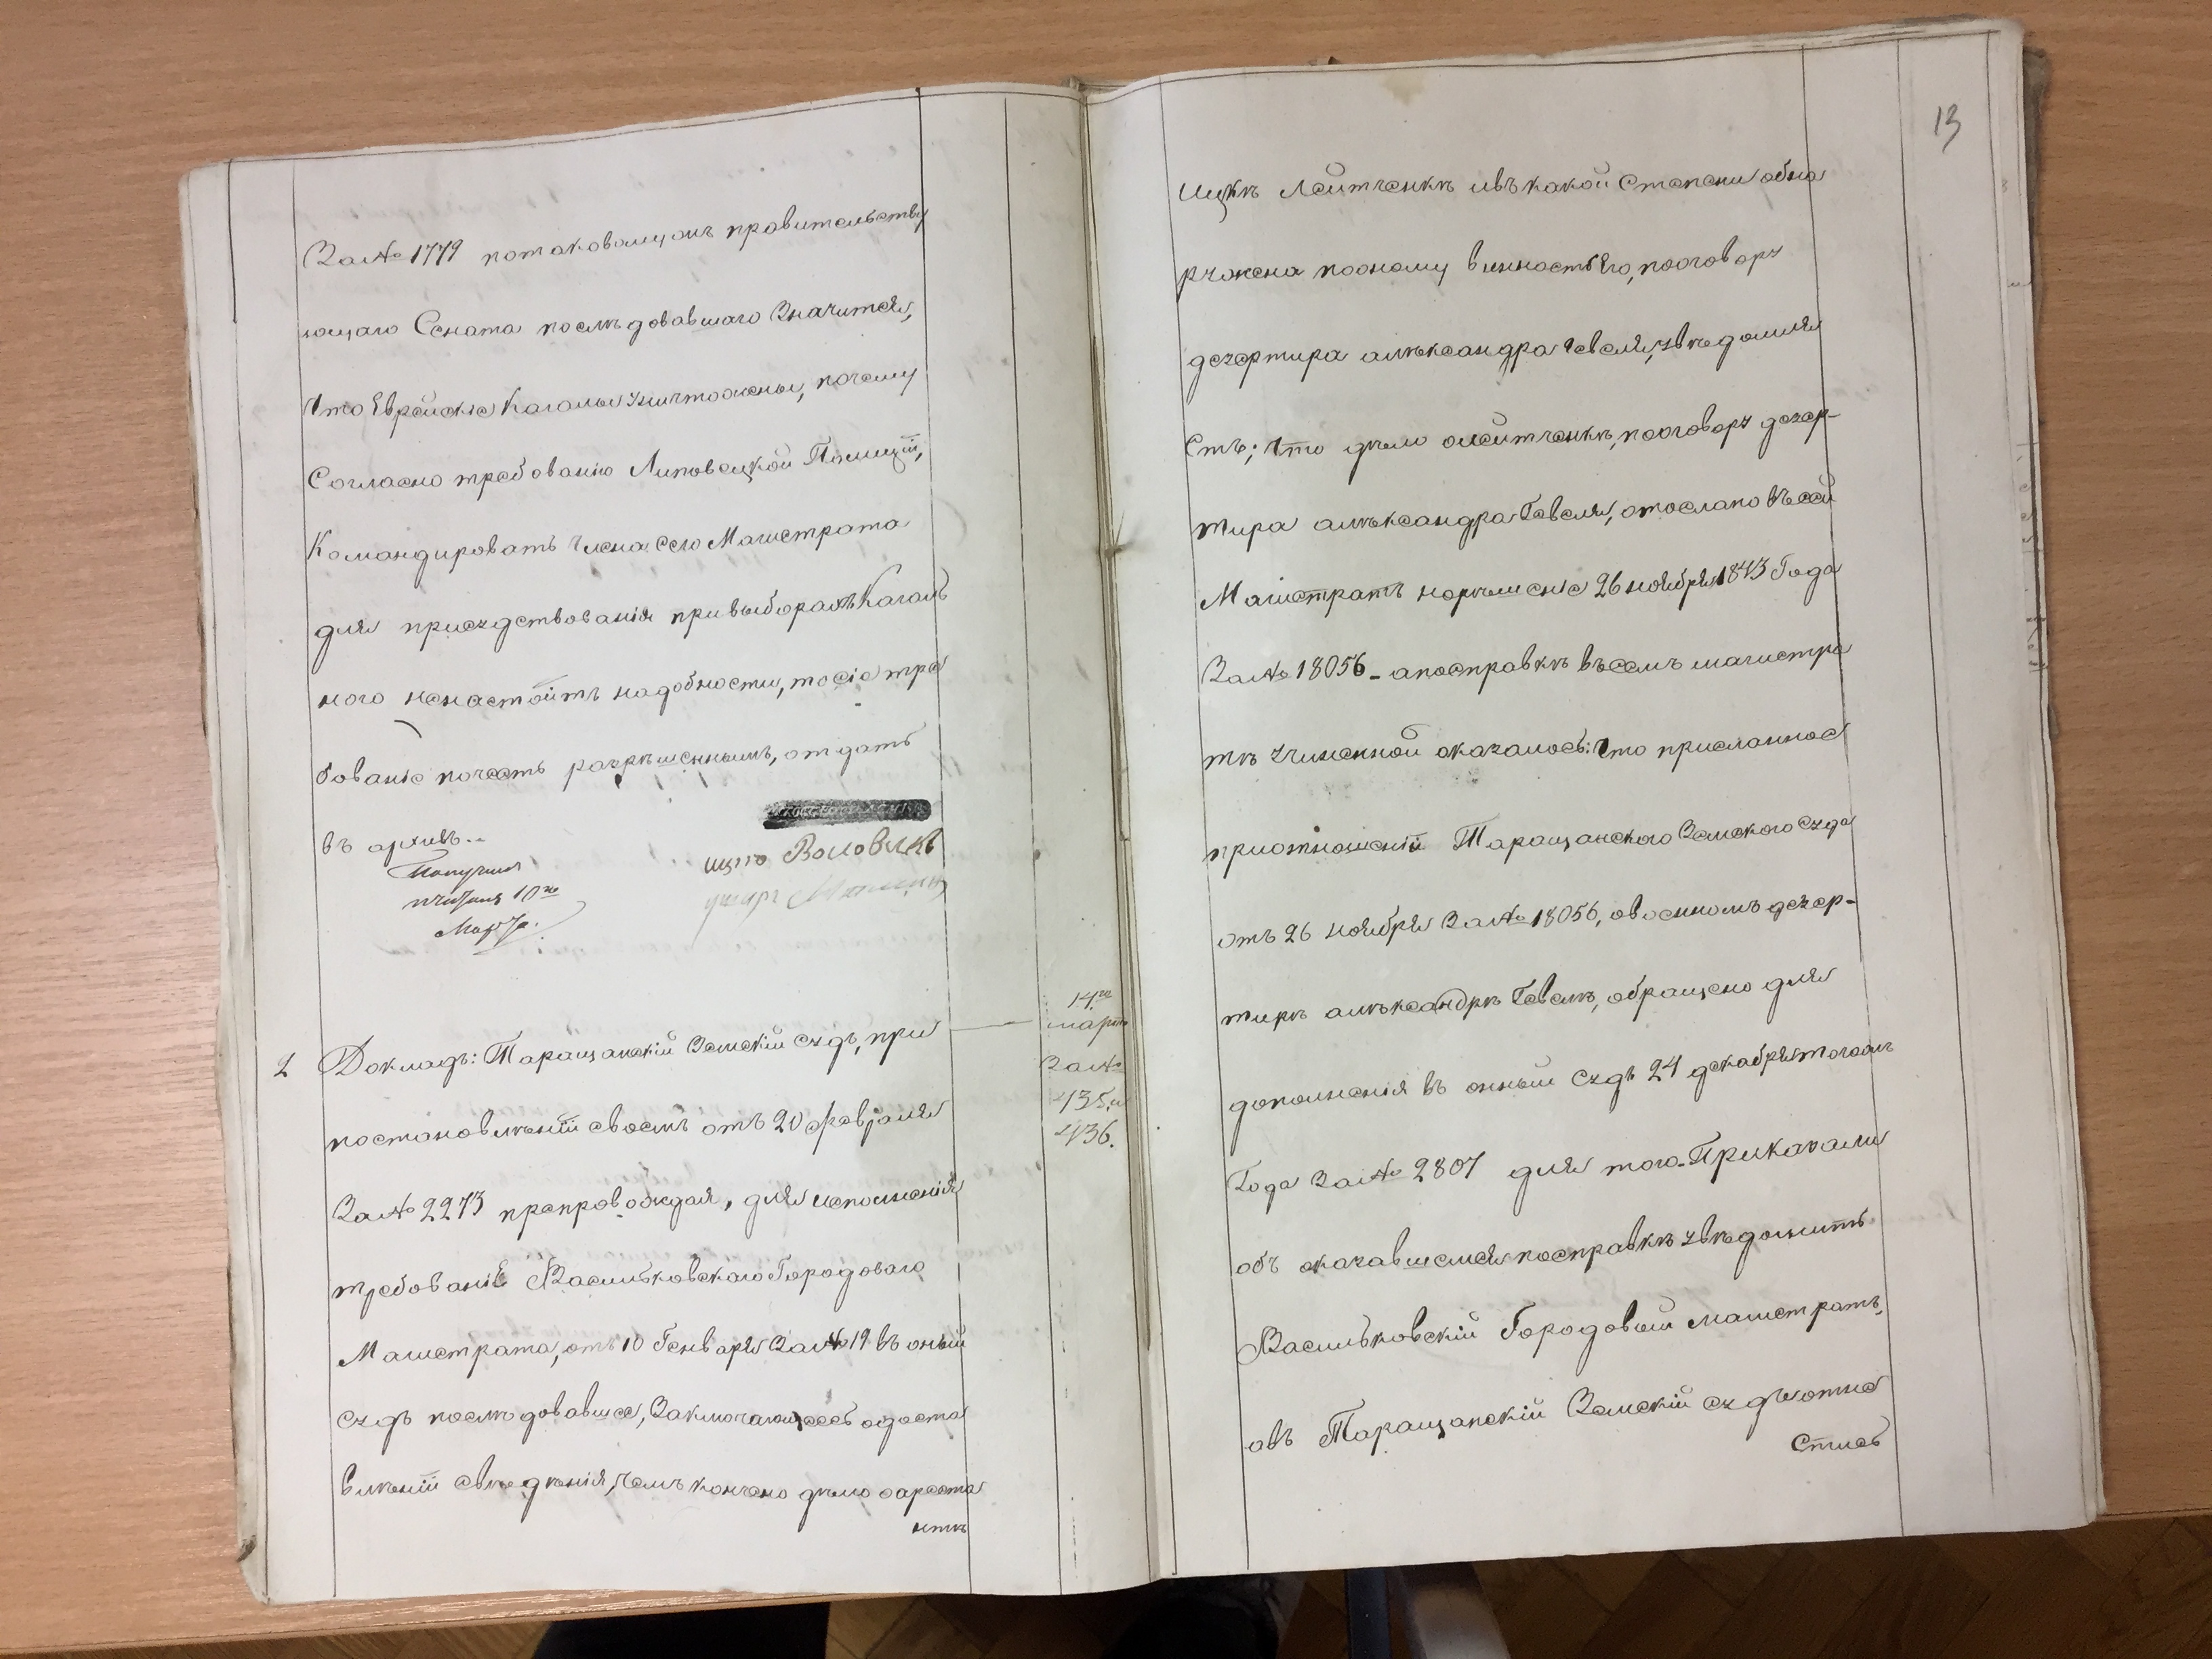 За № 1779 потаковомужъ правительству
ющаго Сената последовавшаго Значится,
что Еврейскіе Кагалы уничтожены, почему
Согласно требованію Липовецкой Полиціи,
Командировать члена сего Магистрата
для присудствованія привыборахъ Кагаль
ного ненастоитъ надобности, то сіе тре
бованіе почесть разрешеннымъ, отдать
въ архивъ..
Получилъ
10го
Марта.
14го
марта
За №
435. и
436.
2 Докладъ: Таращанскій Земскій Судъ, при
постановленіи своемъ отъ 20 февраля
За № 2273 препровождая, для исполненія
требованіе Васильковскаго Городоваго
Магистрата, отъ 10 Генваря За № 19 въ оный
судъ последовавше, Заключающеесь одоста
вленіи сведенія, чемъ кончено дело оареста
нте
13
ицке Лейтченке ивъкакой степени обна
ружена пооному винность его, пооговору
дезертира александра Гевеля, уведомляя
Стъ; что дело олейтченке, пооговору дезер-
тира александра Гевеля, отослано въсей
Магистратъ нарешеніе 26 ноября 1843 Года
За № 18056 - апосправке въсемъ магистра
те учиненной оказалось: что присланное
приотношеніи Таращанского Земского Суда
отъ 26 ноября За № 18056, овоенномъ дезер-
тире александре Гевеле, обращено для
дополненія въ онный судъ 24 декабря тогожъ
Года За № 2807 для того. Приказали
объ оказавшемся посправке уведомить
Васильковскій Городовый магистратъ,
авъ Таращанскій Земскій судъ отне
стись